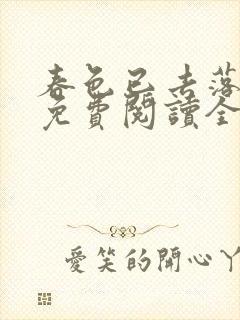 春色已去落
免費閱讀全
愛笑的開心丫